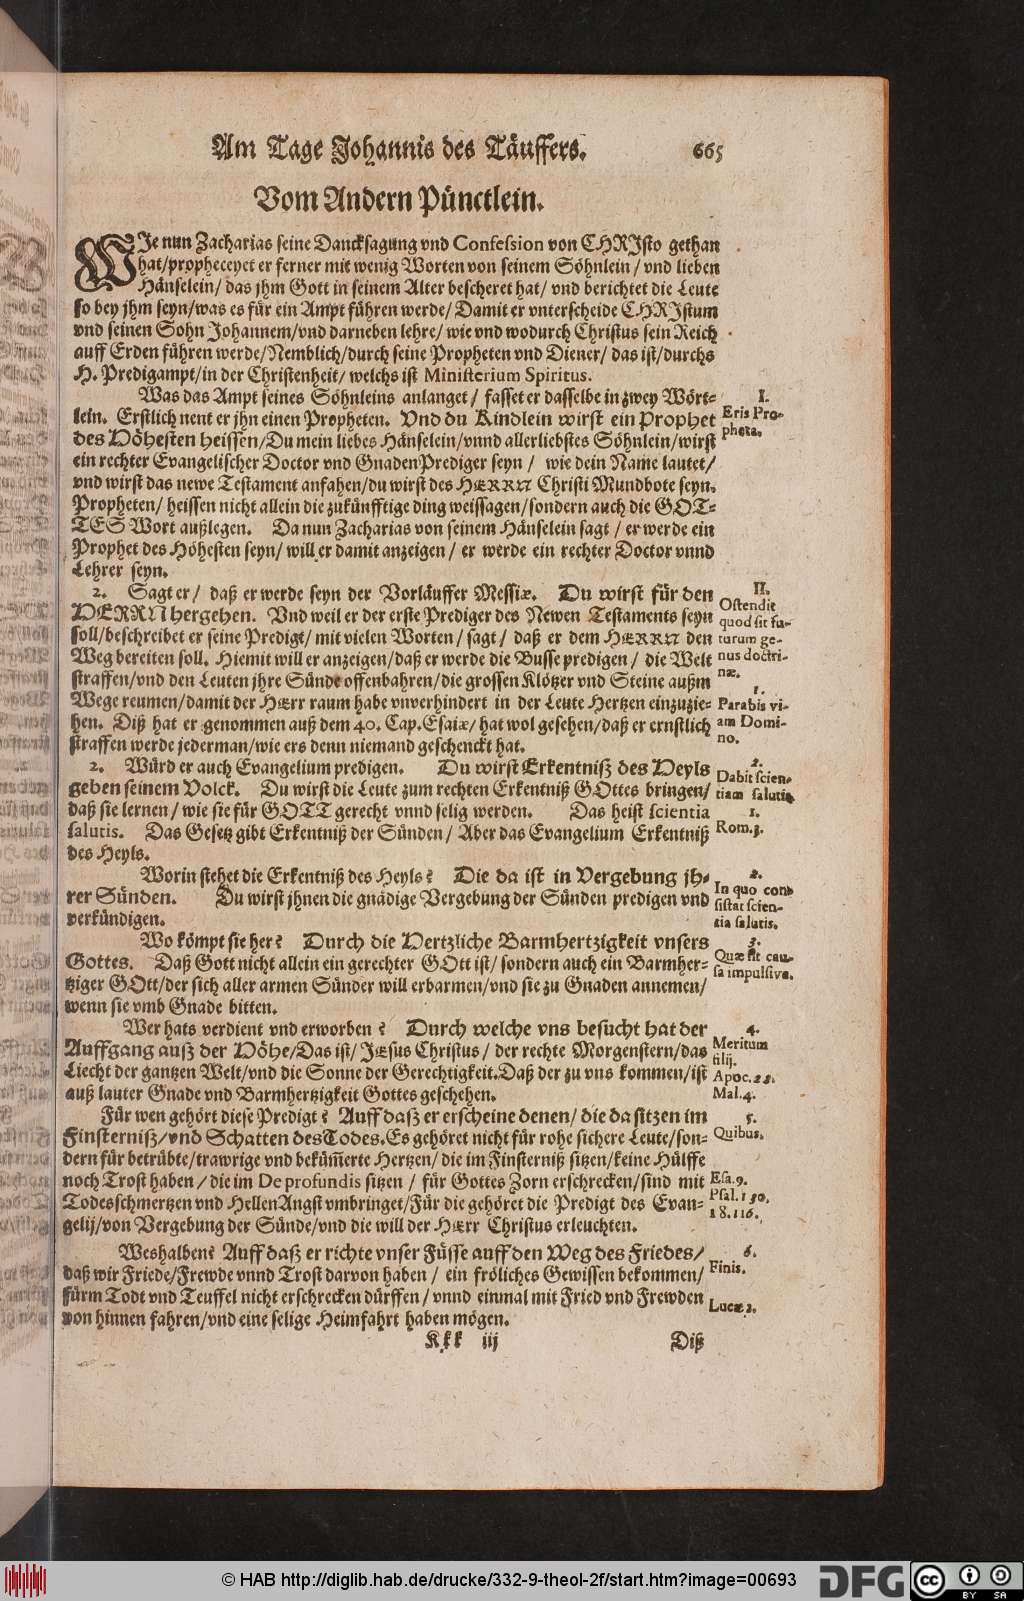 Am Tage Johannis des Täuffers. 665
Vom Andern Pünctlein.
WIe nun Zacharias seine Dancksagung vnd Confession von CHRIsto gethan
hat/propheceyet er ferner mit wenig Worten von seinem Söhnlein/ vnd lieben
Hänselein/ das jhm Gott in seinem Alter bescheret hat/ vnd berichtet die Leute
so bey jhm seyn/was es für ein Ampt führen werde/ Damit er vnterscheide CHRIstum
vnd seinen Sohn Johannem/vnd darneben lehre/ wie vnd wodurch Christus sein Reich
auff Erden führen werde/Nemblich/durch seine Propheten vnd Diener/ das ist/durchs
H. Predigampt/in der Christenheit/ welchs ist Ministerium Spiritus.
Was das Ampt seines Söhnleins anlanget/ fasset er dasselbe in zwey Wört-
lein. Erstlich nent er jhn einen Propheten. Vnd du Kindlein wirst ein Prophet
des Höhesten heissen/Du mein liebes Hänselein/vnnd allerliebstes Söhnlein/wirst
ein rechter Evangelischer Doctor vnd GnadenPrediger seyn/ wie dein Name lautet/
vnd wirst das newe Testament anfahen/du wirst des HERRN Christi Mundbote seyn.
Propheten/ heissen nicht allein die zukünfftige ding weissagen/sondern auch die GOT-
TES Wort außlegen. Da nun Zacharias von seinem Hänselein sagt/ er werde ein
Prophet des Höhesten seyn/ will er damit anzeigen/ er werde ein rechter Doctor vnnd
Lehrer seyn.
I.
Eris Pro-
pheta.
2. Sagt er/ daß er werde seyn der Vorläuffer Messiæ. Du wirst für den
HERRN hergehen. Vnd weil er der erste Prediger des Newen Testaments seyn
soll/beschreibet er seine Predigt/mit vielen Worten/ sagt/ daß er dem HERRN den
Weg bereiten soll. Hiemit will er anzeigen/daß er werde die Busse predigen/ die Welt
straffen/vnd den Leuten jhre Sünde offenbahren/die grossen Klötzer vnd Steine außm
Wege reumen/damit der HErr raum habe vnverhindert in der Leute Hertzen einzuzie-
hen. Diß hat er genommen auß dem 40. Cap. Esaiæ/ hat wol gesehen/daß er ernstlich
straffen werde jederman/wie ers denn niemand geschenckt hat.
II.
Ostendit
quod sit fu-
turum ge-
nus doctri-
næ.
1.
Parabis vi-
am Domi-
no.
2. Würd er auch Evangelium predigen. Du wirst Erkentniß des Heyls
geben seinem Volck. Du wirst die Leute zum rechten Erkentniß GOttes bringen/
daß sie lernen/ wie sie für GOTT gerecht vnnd selig werden. Das heist scientia
salutis. Das Gesetz gibt Erkentniß der Sünden/ Aber das Evangelium Erkentniß
des Heyls.
2.
Dabit scien-
tiam salutis.
1.
Rom.3.
Worin stehet die Erkentniß des Heyls? Die da ist in Vergebung jh-
rer Sünden. Du wirst jhnen die gnädige Vergebung der Sünden predigen vnd
verkündigen.
2.
In quo con-
sistat scien-
tia salutis.
Wo kömpt sie her? Durch die Hertzliche Barmhertzigkeit vnsers
Gottes. Daß Gott nicht allein ein gerechter GOtt ist/ sondern auch ein Barmher-
tziger GOtt/der sich aller armen Sünder will erbarmen/vnd sie zu Gnaden annemen/
wenn sie vmb Gnade bitten.
3.
Quæ sit cau-
sa impulsiva.
Wer hats verdient vnd erworben? Durch welche vns besucht hat der
Auffgang auß der Höhe/Das ist/ JEsus Christus/ der rechte Morgenstern/das
Liecht der gantzen Welt/vnd die Sonne der Gerechtigkeit. Daß der zu vns kommen/ist
auß lauter Gnade vnd Barmhertzigkeit Gottes geschehen.
4.
Meritum
filij.
Apoc.22.
Mal.4.
Für wen gehört diese Predigt? Auff daß er erscheine denen/ die da sitzen im
Finsterniß/vnd Schatten des Todes. Es gehöret nicht für rohe sichere Leute/son-
dern für betrübte/trawrige vnd bekümerte Hertzen/ die im Finsterniß sitzen/keine Hülffe
noch Trost haben/die im De profundis sitzen/ für Gottes Zorn erschrecken/sind mit
Todesschmertzen vnd HellenAngst vmbringet/Für die gehöret die Predigt des Evan-
gelij/von Vergebung der Sünde/vnd die will der HErr Christus erleuchten.
5.
Quibus.
Esa.9.
Psal.130.
18.116.
Weshalben? Auff daß er richte vnser Füsse auff den Weg des Friedes/
daß wir Friede/Frewde vnnd Trost darvon haben/ ein fröliches Gewissen bekommen/
fürm Todt vnd Teuffel nicht erschrecken dürffen/ vnnd einmal mit Fried vnd Frewden
von hinnen fahren/vnd eine selige Heimfahrt haben mögen.
6.
Finis.
Lucæ 2.
Kkk iij Diß
© HAB http://diglib.hab.de/drucke/332-9-theol-2f/start.htm?image=00693
DFG
cc BY SA